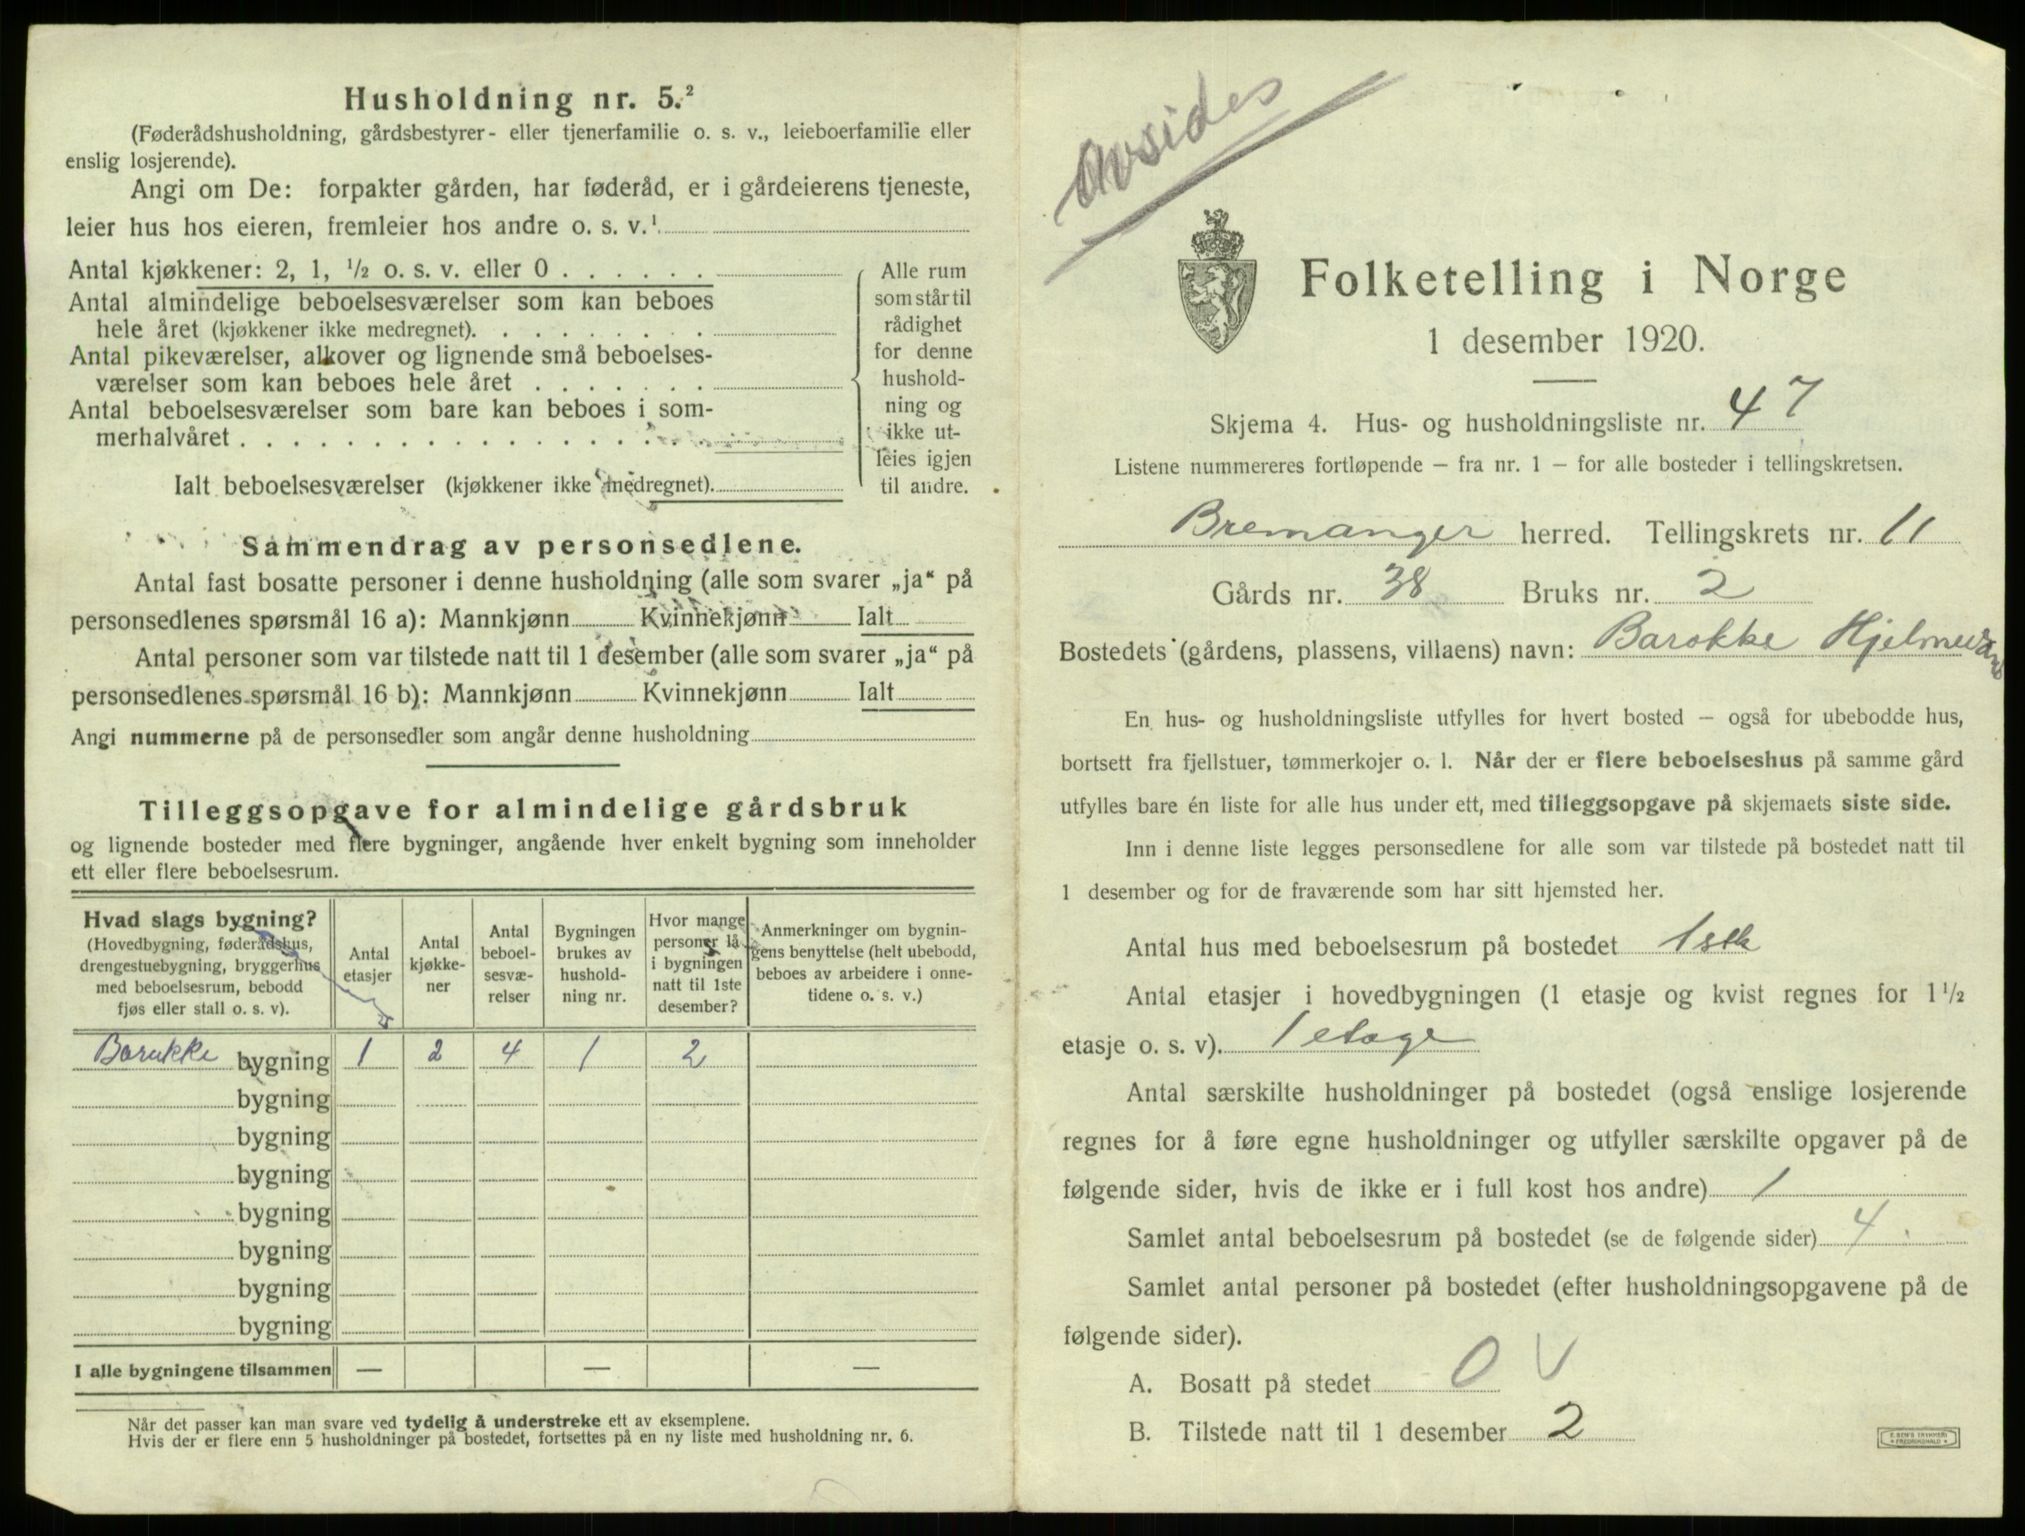 Husholdning nr. 5.²
(Føderådshusholdning, gårdsbestyrer- eller tjenerfamilie o. s. v., leieboerfamilie eller
enslig losjerende).
Angi om De: forpakter gården, har føderåd, er i gårdeierens tjeneste,
leier hus hos eieren, fremleier hos andre o. s. v.¹
Antal kjøkkener: 2, 1, ½ o. s. v. eller 0 . . . . . .
Antal almindelige beboelsesværelser som kan beboes
hele året (kjøkkener ikke medregnet). . . . . . . .
Antal pikeværelser, alkover og lignende små beboelses-
værelser som kan beboes hele året . . . . . . .
Antal beboelsesværelser som bare kan beboes i som-
merhalvåret . . . . . . . . . . . . . . . . .
Ialt beboelsesværelser (kjøkkener ikke medregnet).
Alle rum
som står til
rådighet
for denne
hushold-
ning og
ikke ut-
leies igjen
til andre.
Sammendrag av personsedlene.
Antal fast bosatte personer i denne husholdning (alle som svarer „ja“ på
personsedlenes spørsmål 16 a): Mannkjønn Kvinnekjønn Ialt
Antal personer som var tilstede natt til 1 desember (alle som svarer „ja“ på
personsedlenes spørsmål 16 b): Mannkjønn Kvinnekjønn Ialt
Angi nummerne på de personsedler som angår denne husholdning
Tilleggsopgave for almindelige gårdsbruk
og lignende bosteder med flere bygninger, angående hver enkelt bygning som inneholder
ett eller flere beboelsesrum.
Hvad slags bygning?
(Hovedbygning, føderådshus,
drengestuebygning, bryggerhus
med beboelsesrum, bebodd
fjøs eller stall o. s. v).
Antal
etasjer
Antal
kjøkke-
ner
Antal
beboel-
sesvæ-
relser
Bygningen
brukes av
hushold-
ning nr.
Hvor mange
personer lå
i bygningen
natt til 1ste
desember?
Anmerkninger om bygnin-
gens benyttelse (helt ubebodd,
beboes av arbeidere i onne-
tidene o. s. v.)
Barukke bygning 1 2 4 1 2
bygning
bygning
bygning
bygning
bygning
bygning
bygning
I alle bygningene tilsammen — — —
Når det passer kan man svare ved tydelig å understreke ett av eksemplene.
Hvis der er flere enn 5 husholdninger på bostedet, fortsettes på en ny liste med husholdning nr. 6.
Avsides
Folketelling i Norge
1 desember 1920.
Skjema 4. Hus- og husholdningsliste nr. 47
Listene nummereres fortløpende – fra nr. 1 – for alle bosteder i tellingskretsen.
Bremanger herred. Tellingskrets nr. 11
Gårds nr. 38 Bruks nr. 2
Bostedets (gårdens, plassens, villaens) navn: Barokke Hjelmevand
En hus- og husholdningsliste utfylles for hvert bosted – også for ubebodde hus,
bortsett fra fjellstuer, tømmerkojer o. l. Når der er flere beboelseshus på samme gård
utfylles bare én liste for alle hus under ett, med tilleggsopgave på skjemaets siste side.
Inn i denne liste legges personsedlene for alle som var tilstede på bostedet natt til
1 desember og for de fraværende som har sitt hjemsted her.
Antal hus med beboelsesrum på bostedet 1 stk
Antal etasjer i hovedbygningen (1 etasje og kvist regnes for 1½
etasje o. s. v). 1 etage
Antal særskilte husholdninger på bostedet (også enslige losjerende
regnes for å føre egne husholdninger og utfyller særskilte opgaver på de
følgende sider, hvis de ikke er i full kost hos andre) 1
Samlet antal beboelsesrum på bostedet (se de følgende sider) 4
Samlet antal personer på bostedet (efter husholdningsopgavene på de
følgende sider).
A. Bosatt på stedet 0 V
B. Tilstede natt til 1 desember 2